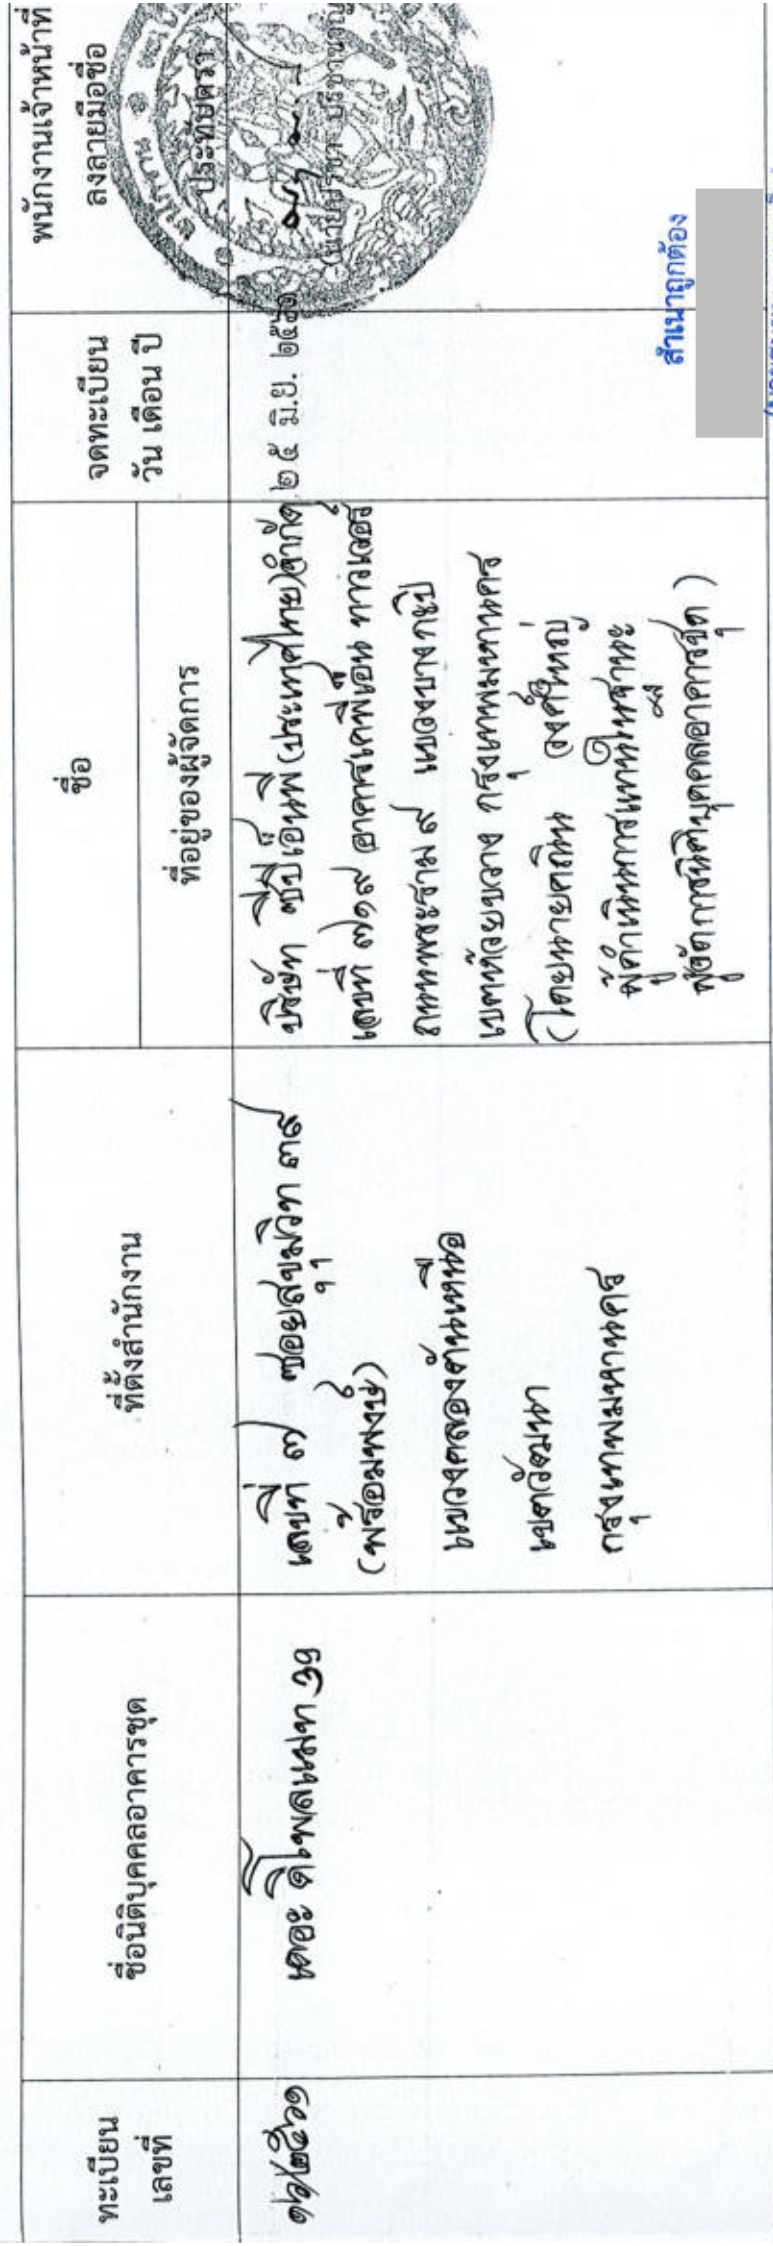 ทะเบียน
เลขที่
ชื่อนิติบุคคลอาคารชุด
ที่ตั้งสำนักงาน
ชื่อ
ที่อยู่ของผู้จัดการ
จดทะเบียน
วัน เดือน ปี
พนักงานเจ้าหน้าที่
ลงลายมือชื่อ
ประทับตรา
เดอะ ดิโพลแมท 39
เลขที่ ๗ ซอยสุขุมวิท ๓๙
(พร้อมพงษ์)
แขวงคลองตันเหนือ
เขตวัฒนา
กรุงเทพมหานคร
บริษัท ซีบีอาร์อี (ประเทศไทย) จำกัด
เลขที่
ถนนพระราม ๙ แขวงบางกะปิ
เขตห้วยขวาง กรุงเทพมหานคร
(โดยนาย
ผู้ดำเนินการแทนในฐานะ
ผู้จัดการนิติบุคคลอาคารชุด)
๒๕ มิ.ย. ๒๕๖๑
สำเนาถูกต้อง